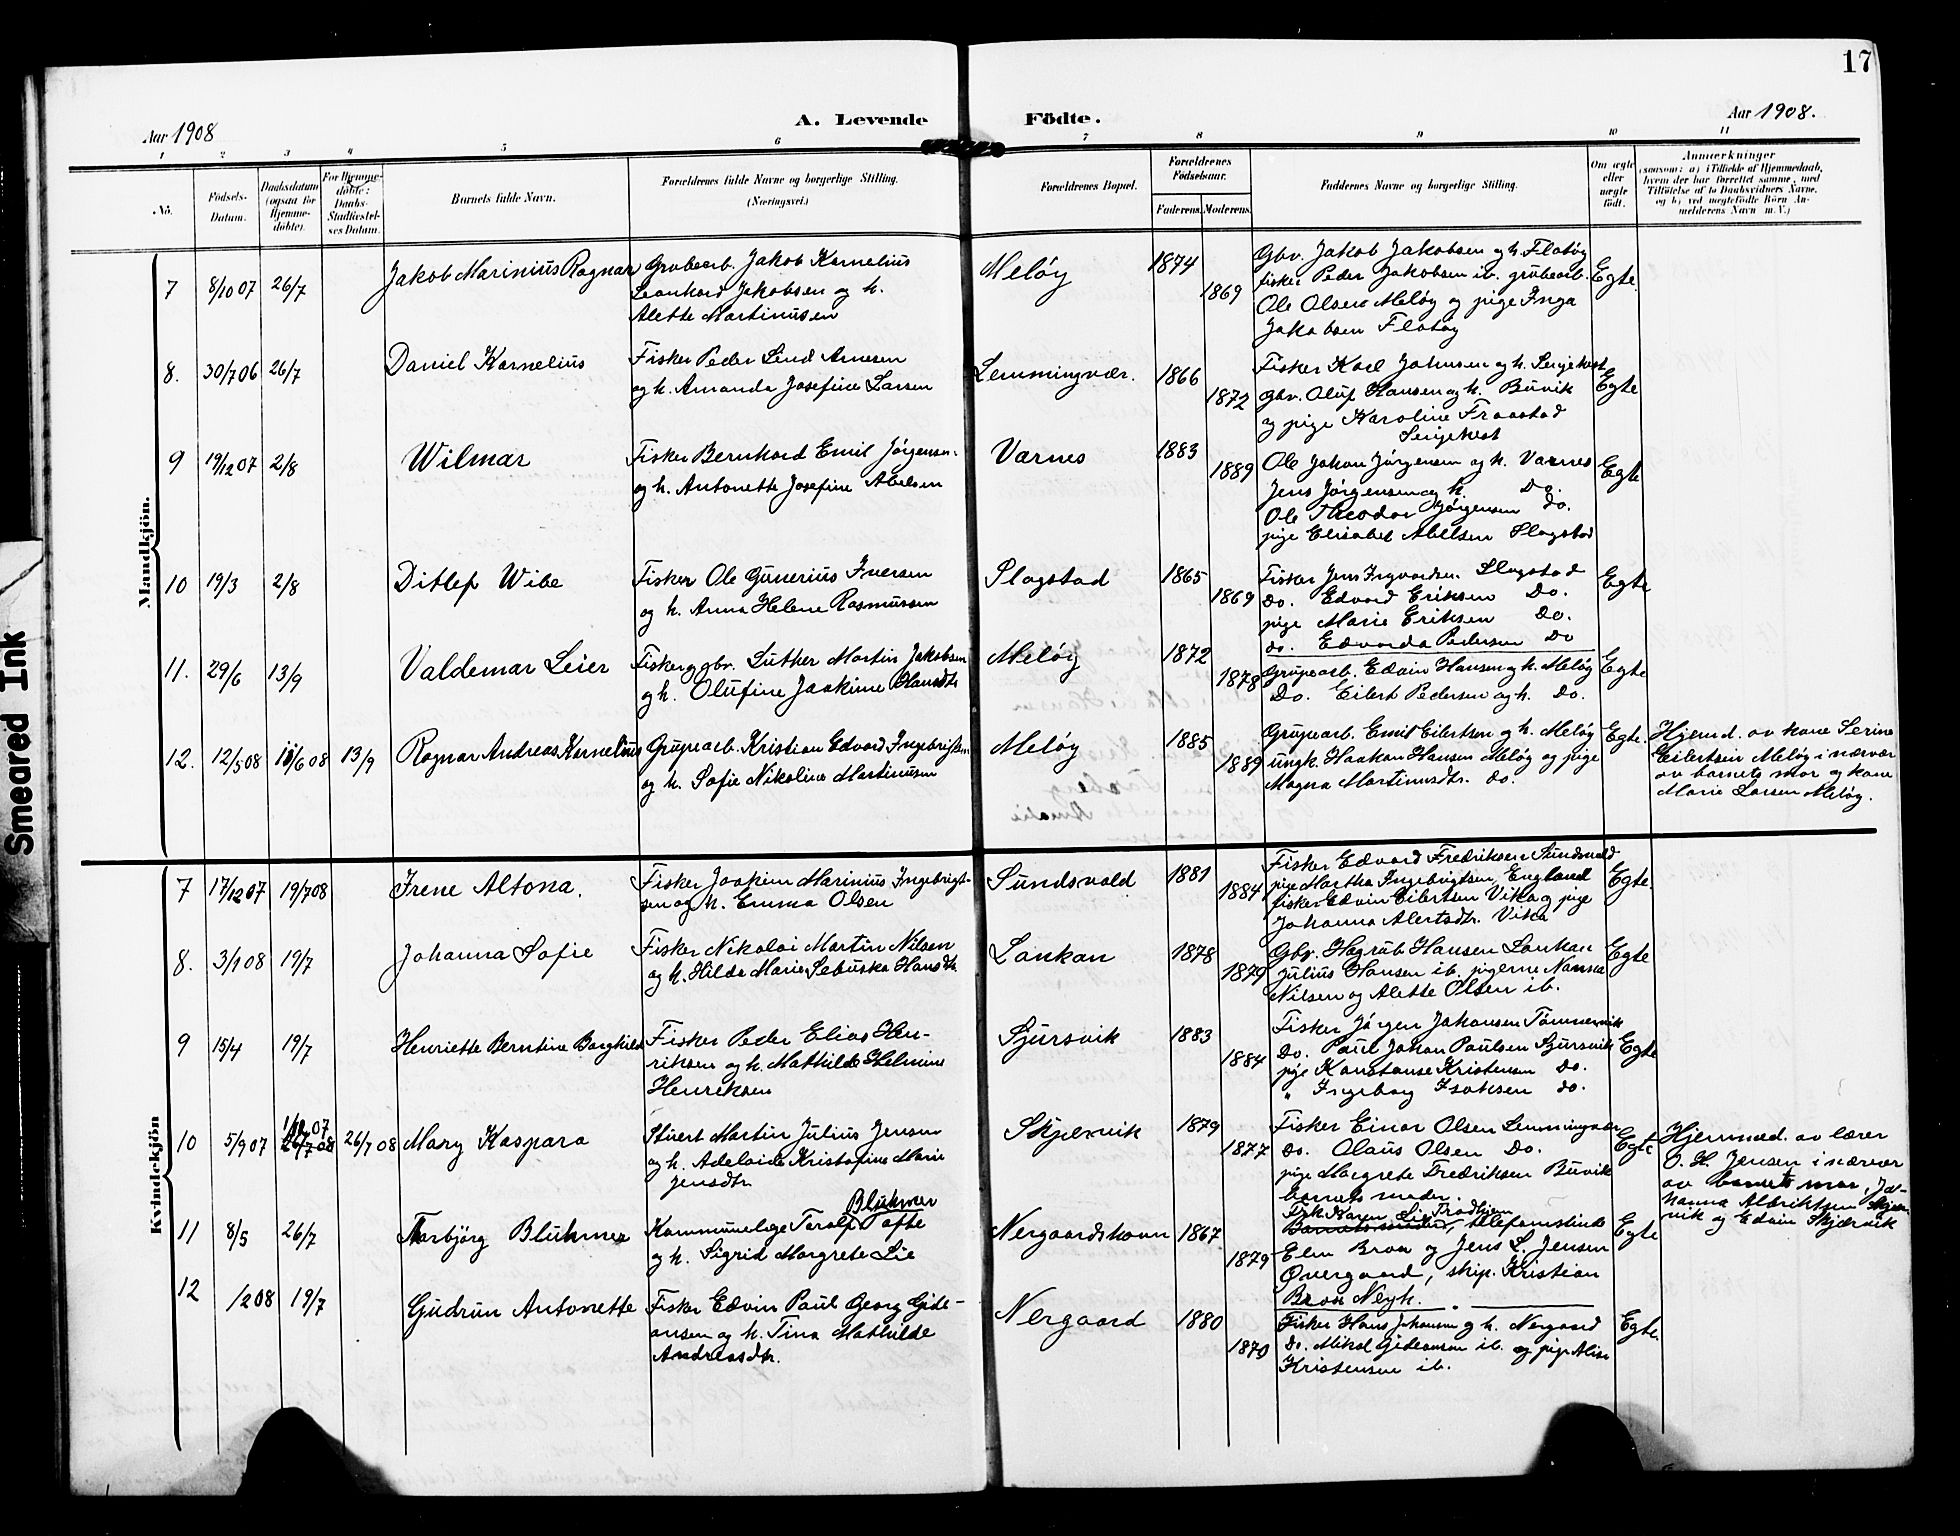 17
Aar 1908
A. Levende Födte.
Aar 1908.
1 2 3 4 5 6 7 8 9 10 11
No.
Födsels-
Datum.
Daabsdatum
(ogsaa for
Hjemme-
döbte).
For Hjemme-
döbte:
Daabs-
Stadfæstel-
ses Datum.
Barnets fulde Navn.
Forældrenes fulde Navne og borgerlige Stilling.
(Næringsvei.)
Forældrenes Bopæl.
Forældrenes
Födselsaar.
Faderens. Moderens.
Faddernes Navne og borgerlige Stilling.
Om ægte
eller
uægte
födt.
Anmærkninger
(saasom: a) i Tilfælde af Hjemmedaab,
hvem der har forrettet samme, med
Tilföielse af to Daabsvidners Navne,
og b) ved uægtefödte Börn An-
melderens Navn m. V.)
Mandkjön.
7 8/10 07 26/7 Jakob Marinius Ragnar
Grubearb. Jakob Kornelius
Leonhard Jakobsen og h.
Alette Martinusen
Meløy 1874 1869
Gbr. Jakob Jakobsen og h. Flatøy
fisker Peder Jakobsen ib. grubearb.
Ole Olsen Meløy og pige Inga
Jakobsen Flatøy
Egte.
8. 30/7 06 26/7 Daniel Kornelius
Fisker Peder Lind Arnesen
og h. Amanda Josefine Larsen
Lemmingvær. 1866 1872
Fisker Karl Johnsen og h.
Gbr. Oluf Hansen og h. Buvik
og pige Karoline Fraastad
Egte
9 19/12 07 2/8 Wilmar
Fisker Bernhard Emil Jørgensen.
og h. Antonette Josefine Abelsen
Varnes 1883 1889
Ole Johan Jørgensen og h. Varnes
Jens Jørgensen og h. Do.
Ole Theodor Jørgensen Do.
pige Elisabet Abelsen Slagstad
Egte
10 19/3 2/8 Ditlef Wibe
Fisker Ole Gunerius Iversen
og h. Anna Helene Rasmussen
Slagstad 1865 1869
Fisker Jens Ingvardsen. Slagstad
Do. Edvard Eriksen Do.
pige Marie Eriksen Do.
do. Edvarda Pedersen Do
Egte
11. 29/6 13/9 Valdemar Leier
Fisker og gbr. Luther Martin Jakobsen
og h. Olufine Joakime Hansdtr
Meløy 1872 1878
Grupearb. Edvin Hansen og h. Meløy
Do. Eilert Pedersen og h. Do.
Egte
12. 12/5 08 11/6 08 13/9 Ragnar Andreas Kornelius
Grupearb. Kristian Edvard Ingebrigtsen
og h. Sofie Nikoline Martinusen
Meløy 1885 1889
Grupearb. Emil Eilertsen og h. Meløy
ungk. Haakon Hansen Meløy og pige
Magna Martinusdtr. do.
Egte.
Hjemd. av kone Serine
Eilertsen Meløy i nærvær
av barnets mor og kone
Marie Larsen Meløy.
Kvindekjön
7 17/12 07 19/7 08 Irene Altona.
Fisker Joakim Marinius Ingebrigt-
sen og h. Emma Olsen
Sundsvold 1881 1884
Fisker Edvard Fredriksen Sundsvold
pige Martha Ingebrigtsen, England
fisker Edvin Eilertsen Vika og pige
Johanna Alertsdtr. Vika
Egte.
8. 3/1 08 19/7 Johanna Sofie
Fisker Nikolai Martin Nilsen
og h. Hilda Marie Sebuska Hansdtr.
Lankan 1878 1879
Gbr. Hagrub Hansen Lankan
Julius Hansen ib. pigerne Nanna
Nilsen og Alette Olsen ib.
Egte
9 15/4 19/7 Henriette Berntine Borghild
Fisker Peder Elias Hen-
riksen og h. Mathilde Helmine
Henriksen
Sjursvik 1883 1884
Fisker Jørgen Johansen Tømmervik
Do. Paul Johan Paulsen Sjursvik
pige Konstanse Kristensen Do.
" Ingeborg Isaksen do.
Egte
10 5/9 07 26/7 08 26/7 08 Mary Kaspara
Stuert Martin Julius Jensen
og h. Adelaide Kristofine Marie
Jensdtr.
Skjærvik 1879 1877
Fisker Einar Olsen Lemmingvær
Do. Olaus Olsen Do.
pige Margrete Fredriksen Buvik
barnets moder.
Egte
Hjemmed. av lærer
O. H. Jensen i nærvær
av barnets mor, Jo-
hanna Aldriktsen Skjær-
vik og Edvin Skjærvik
11 8/5 26/7 Torbjörg Bluhmer
Bluhmer
Kommunelæge Toralf Tofte
og h. Sigrid Margrete Lie
Nergaardshavn 1867 1879
Frk. Karen Lie Trondhjem
Barnets moder, telefonistinde
Elen Braa og Jens L. Jensen
Øvergaard, skip. Kristian
Braa Neyh.
Egte
12 /2 08 19/7 Gudrun Antonette
Fisker Edvin Paul Georg Gide-
onsen og h. Tina Mathilde
Andreasdtr.
Nergaard 1880 1870
Fisker Hans Johansen og h. Nergaard
do. Mikal Gideonsen ib. og pige Alise
Kristensen ib.
Egte
Smeared Ink